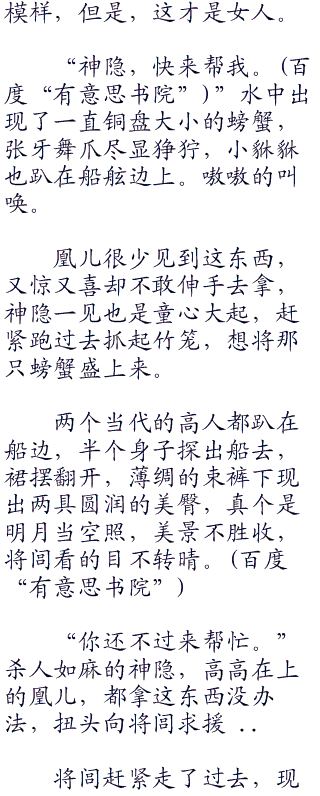 模样，但是，这才是女人。
“神隐，快来帮我。（百
度“有意思书院”）”水中出
现了一直铜盘大小的螃蟹，
张牙舞爪尽显狰狞，小貅貅
也趴在船舷边上。嗷嗷的叫
唤。
凰儿很少见到这东西，
又惊又喜却不敢伸手去拿，
神隐一见也是童心大起，赶
紧跑过去抓起竹笼，想将那
只螃蟹盛上来。
两个当代的高人都趴在
船边，半个身子探出船去，
裙摆翻开，薄绸的束裤下现
出两具圆润的美臀，真个是
明月当空照，美景不胜收，
将闾看的目不转晴。（百度
“有意思书院”）
“你还不过来帮忙。”
杀人如麻的神隐，高高在上
的凰儿，都拿这东西没办
法，扭头向将闾求援 ..
将闾赶紧走了过去，现